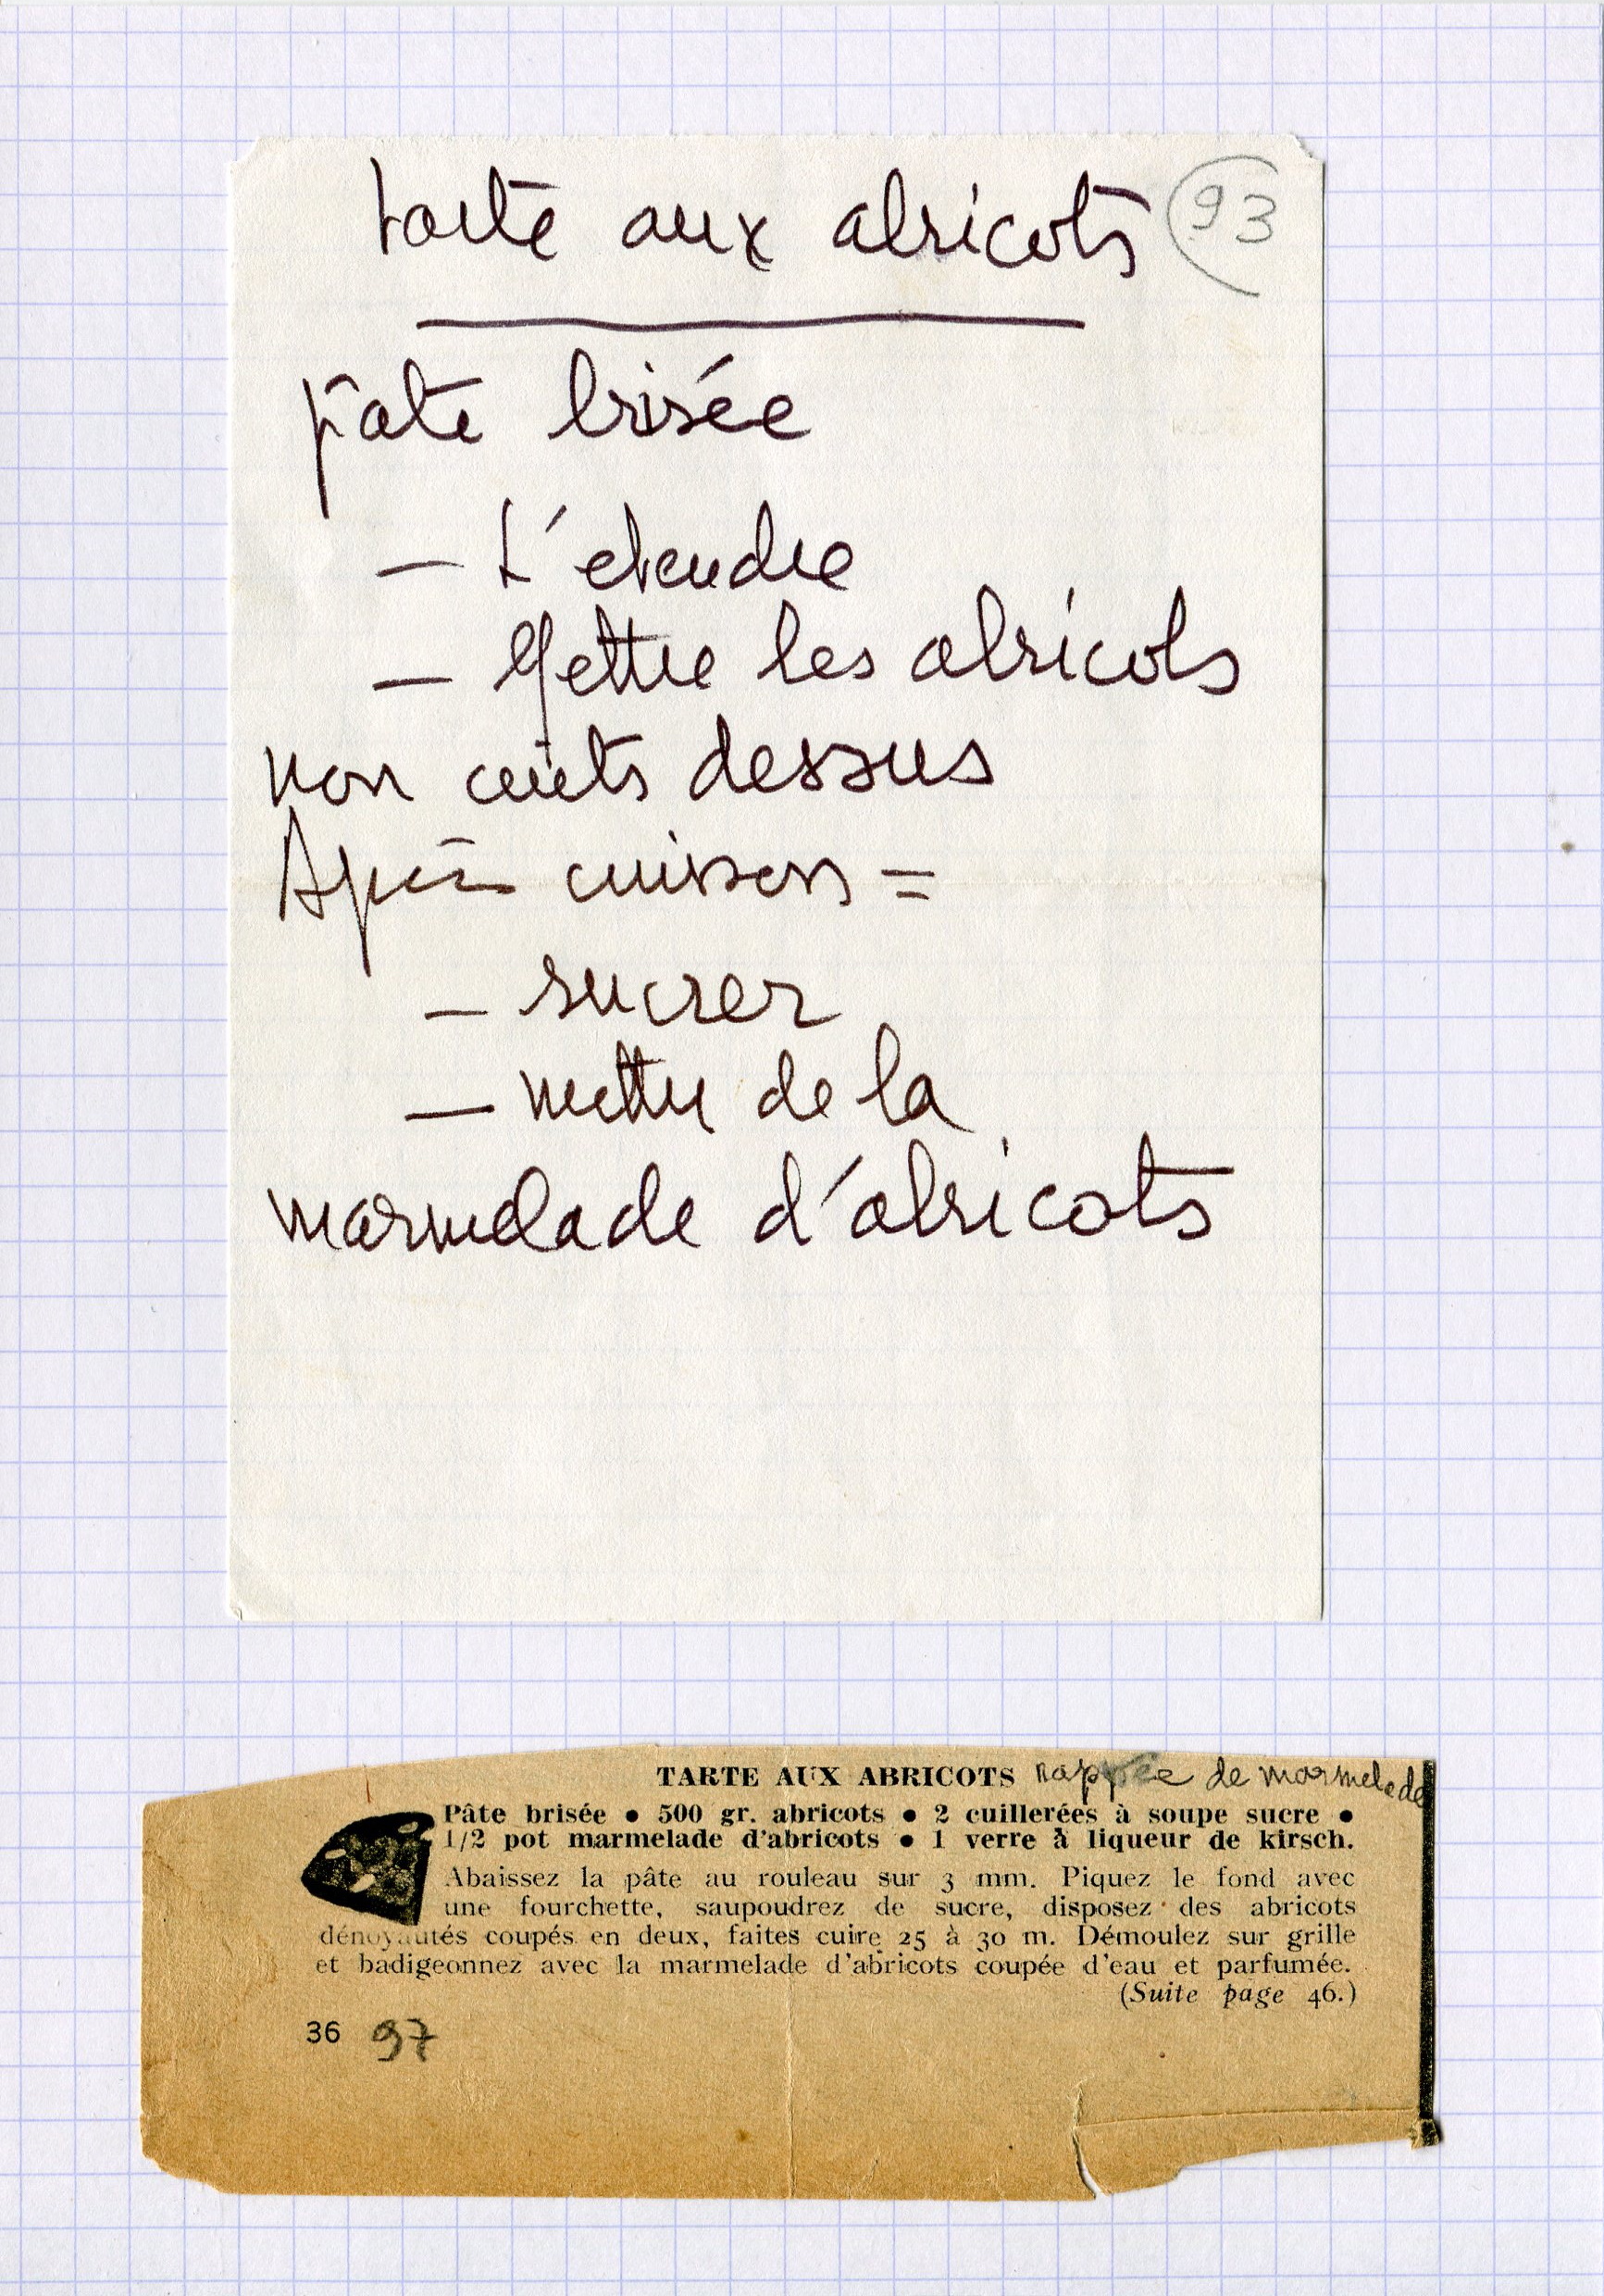 tarte aux abricots 93
pâte brisée
- L'etendre
- Mettre les abricots
non cuits dessus
Après cuisson =
- sucrer
- mettre de la
marmelade d'abricots
TARTE AUX ABRICOTS nappée de marmelade
Pâte brisée • 500 gr. abricots • 2 cuillerées à soupe sucre •
1/2 pot marmelade d'abricots • 1 verre à liqueur de kirsch.
Abaissez la pâte au rouleau sur 3 mm. Piquez le fond avec
une fourchette, saupoudrez de sucre, disposez des abricots
dénoyautés coupés en deux, faites cuire 25 à 30 m. Démoulez sur grille
et badigeonnez avec la marmelade d'abricots coupée d'eau et parfumée.
(Suite page 46.)
36 97